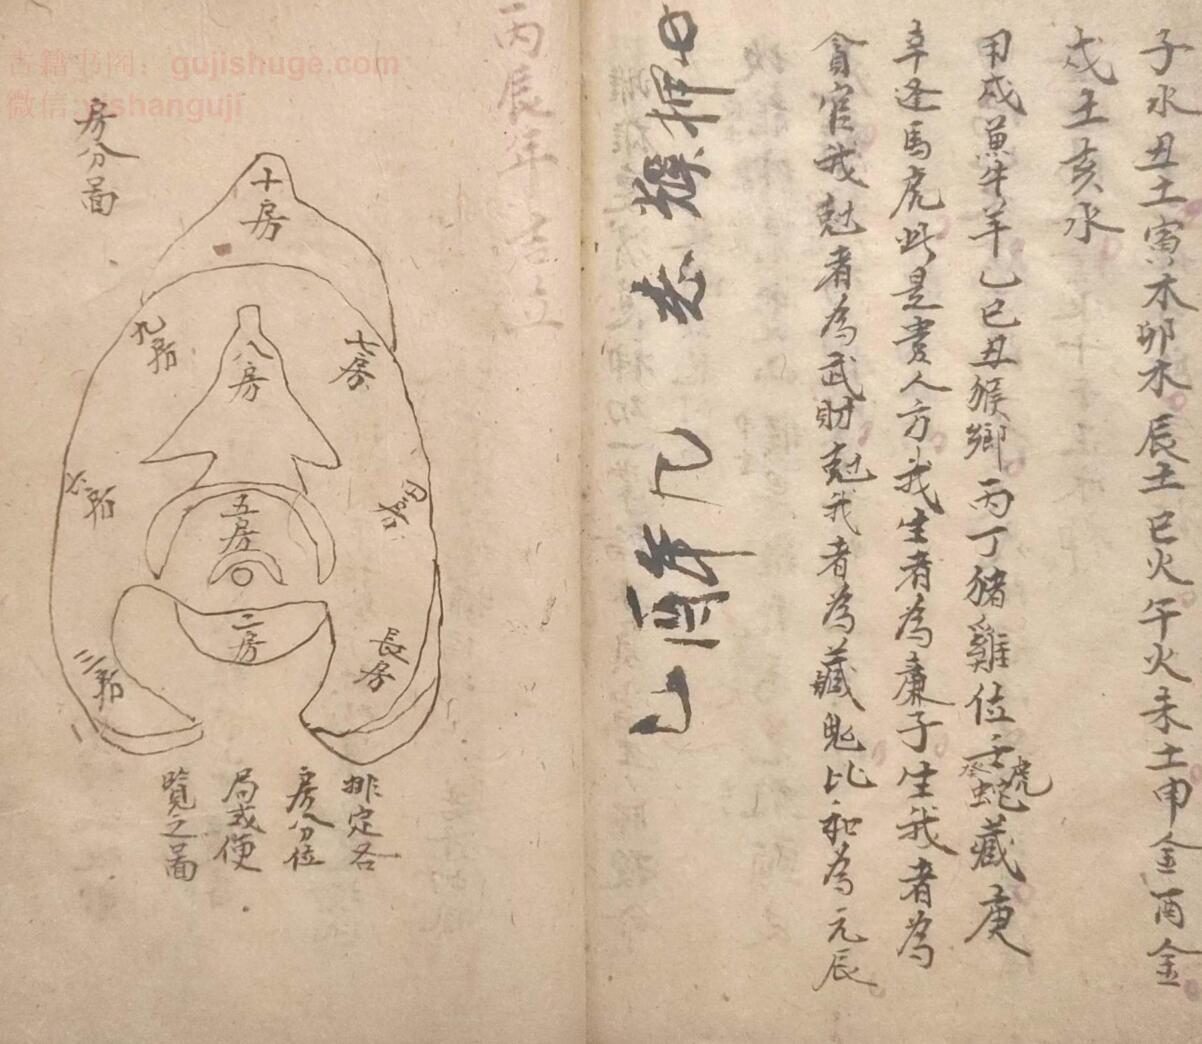 子水丑土寅木卯木辰土巳火午火未土申金酉金
戌土亥水
甲戊兼牛羊乙己丑猴鄉丙丁猪雞位壬癸蛇虎藏庚
辛逢馬虎此是貴人方我生者為廉子生我者為
貪官我尅者為武財尅我者為藏鬼比和為元辰
丙辰年吉立
房分圖
十房
九房
八房
七房
六房
五房
四房
三房
二房
長房
排定各
房分位
局或便
覽之圖
古籍书阁：gujishuge.com
微信:yishanguji